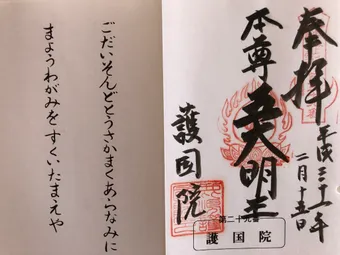 奉拝
平成三十一年
二月十五日
本尊 五大明王
護国院
第二十九番
護国院
ごだいそんどとうさかまくあらなみに
まようわがみをすくいたまえや